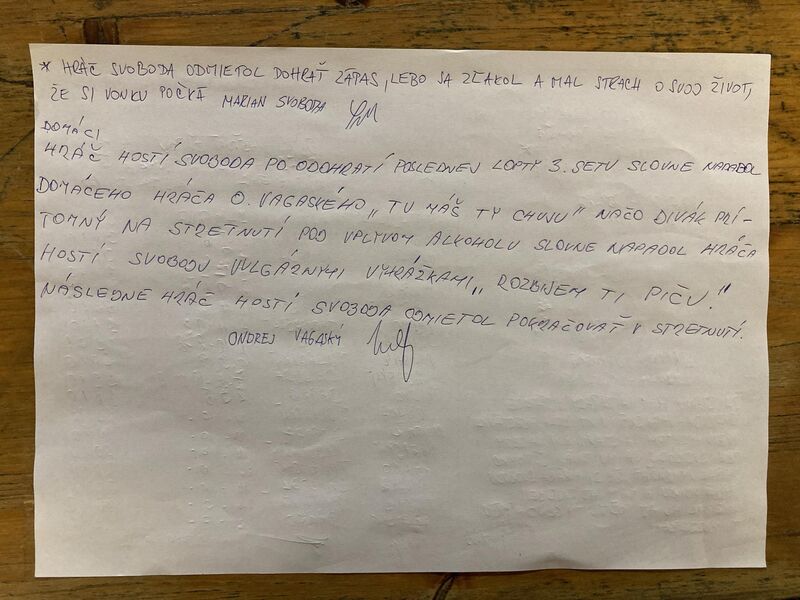 * HRÁČ SVOBODA ODMIETOL DOHRAŤ ZÁPAS, LEBO SA ZĽAKOL A MAL STRACH O SVOJ ŽIVOT,
ŽE SI VONKU POČKÁ MARIAN SVOBODA
DOMÁCI
HRÁČ HOSTÍ SVOBODA PO ODOHRATÍ POSLEDNEJ LOPTY 3. SETU SLOVNE NAPADOL
DOMÁCEHO HRÁČA O. VAGASKÉHO „TU MÁŠ TY CHUJU" NAČO DIVÁK PRÍ-
TOMNÝ NA STRETNUTÍ POD VPLYVOM ALKOHOLU SLOVNE NAPADOL HRÁČA
HOSTÍ SVOBODU VULGÁRNYMI VYHRÁŽKAMI „ROZBIJEM TI PIČU!"
NÁSLEDNE HRÁČ HOSTÍ SVOBODA ODMIETOL POKRAČOVAŤ V STRETNUTÍ.
ONDREJ VAGASKÝ